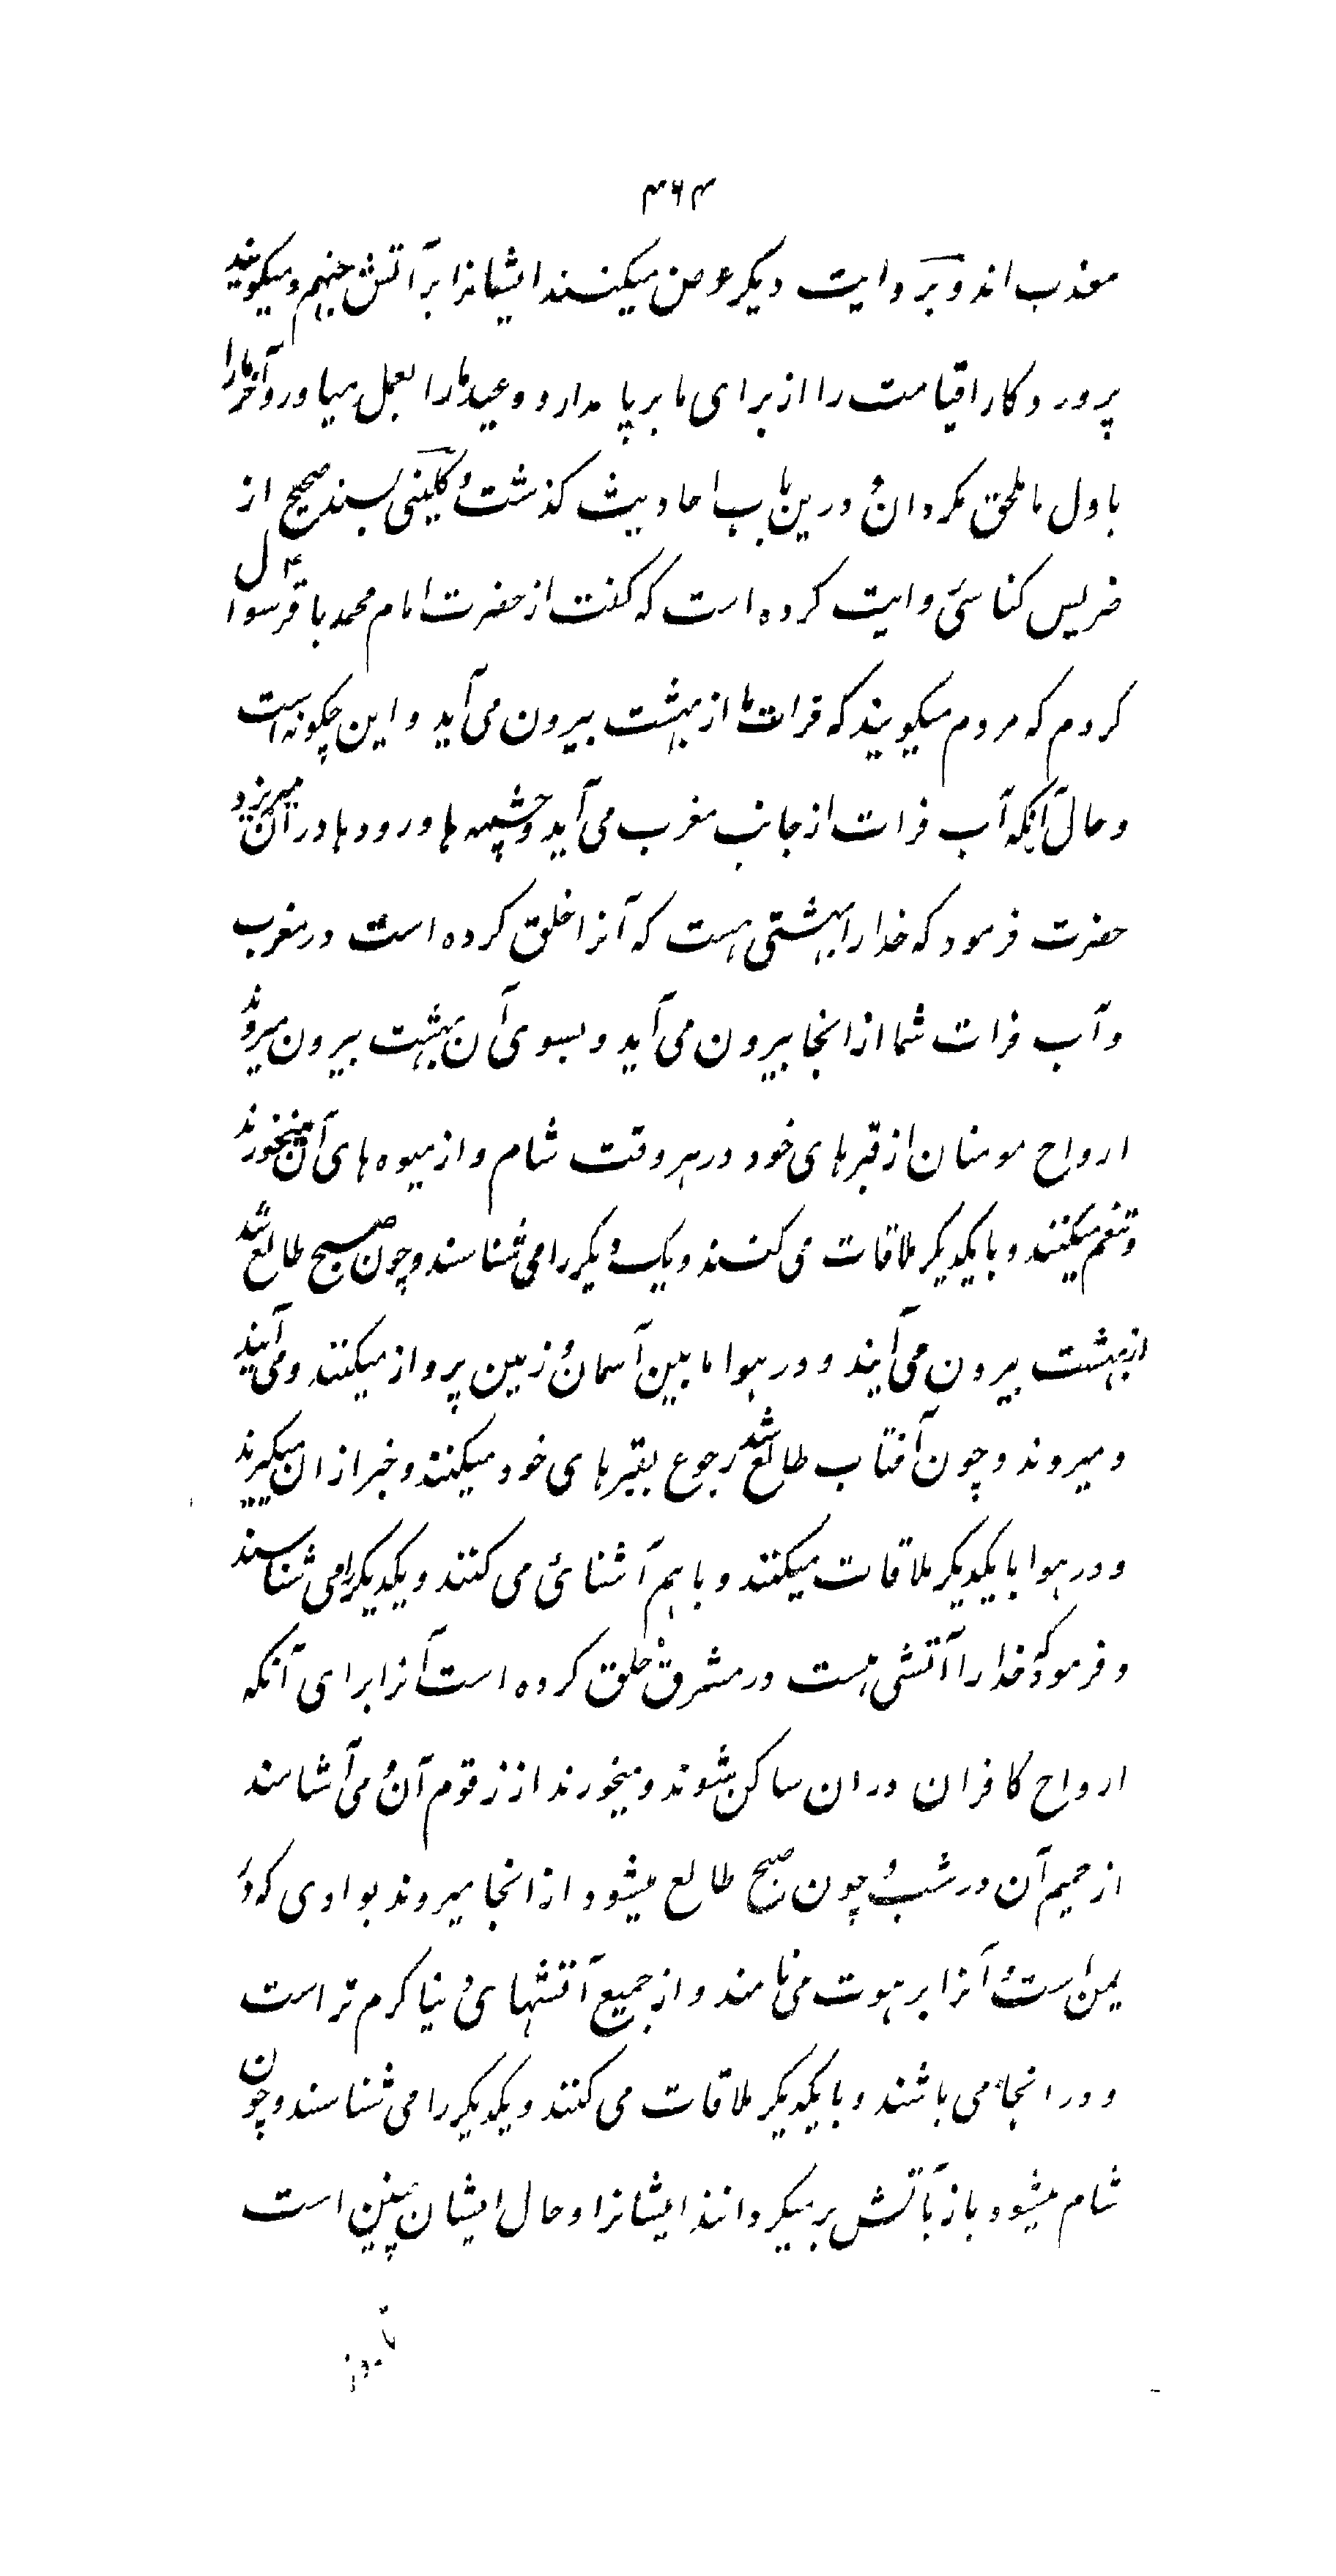 ۴۶۴
معذب اند و بروایت دیگر عرض میکنند ایشانرا بر آتش جهنم و میکویند
پروردکارا قیامت را از برای ما بر پا مدار و وعیدها را بعمل میاور و آخر ما را
باول ما ملحق مکردان و درین باب احادیث کذشت و کلینی بسند صحیح از
ضریس کناسی روایت کرده است که کفت از حضرت امام محمد باقر ع سوال
کردم که مردم میکویند که فرات ما از بهشت بیرون می آید و این چکونه است
و حال آنکه آب فرات از جانب مغرب می آید و چشمه ها و رودها در آن میریزد
حضرت فرمود که خدا را بهشتی هست که آنرا خلق کرده است در مغرب
و آب فرات شما از انجا بیرون می آید و بسوی آن بهشت بیرون میروند
ارواح مومنان از قبرهای خود در هر وقت شام و از میوه های آن میخورند
و تنعم میکنند و با یکدیکر ملاقات می کنند و یک دیکر را می شناسند و چون صبح طالع شد
از بهشت بیرون می آیند و در هوا ما بین آسمان و زمین پرواز میکنند و می آیند
و میروند و چون آفتاب طالع شد رجوع بقبرهای خود میکنند و خبر از ان میکیرند
و در هوا با یکدیکر ملاقات میکنند و با هم آشنائی می کنند و یکدیکر را می شناسند
و فرمود که خدا را آتشی هست در مشرق خلق کرده است آنرا برای آنکه
ارواح کافران در ان ساکن شوند و میخورند از زقوم آن و می آشامند
از حمیم آن در شب و چون صبح طالع میشود از انجا میروند بوادی که در
یمن است و آنرا برهوت می نامند و از جمیع آتشهای دنیا کرم تر است
و در انجا می باشند و با یکدیکر ملاقات می کنند و یکدیکر را می شناسند و چون
شام میشود باز بآتش بر میکردانند ایشانرا و حال ایشان چنین است
تا روز